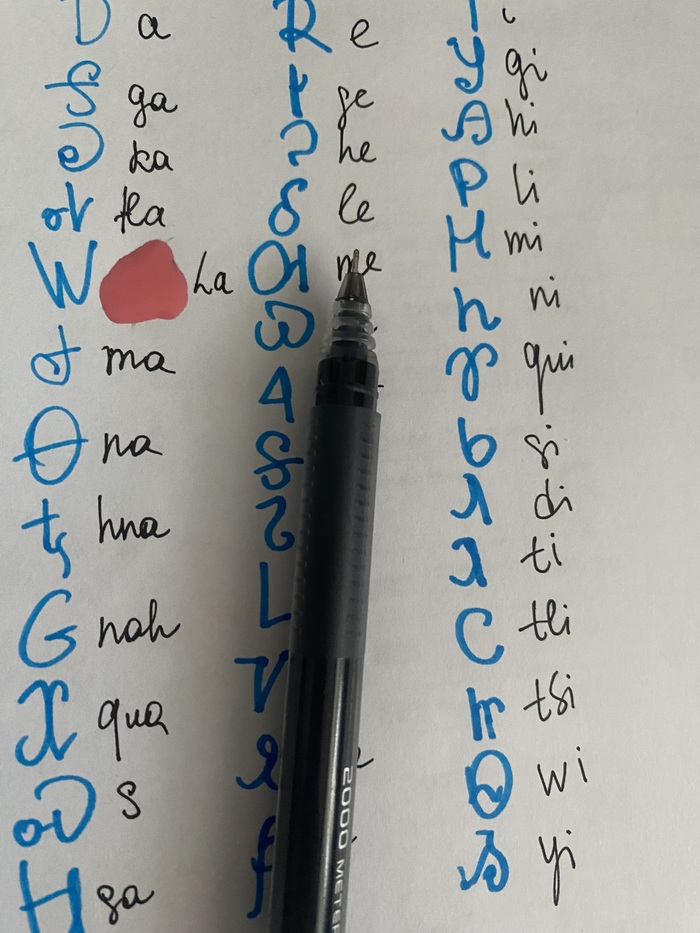 Ꭰ a
Ꭶ ga
Ꭷ ka
Ꭽ ha
Ꮃ La
Ꮉ ma
Ꮎ na
Ꮏ hna
Ꮐ nah
Ꮖ qua
Ꮝ s
Ꮜ sa
Ꭱ e
Ꭸ ge
Ꭾ he
Ꮄ le
Ꮊ me
Ꮗ
Ꮞ
Ꮥ
Ꮦ
Ꮮ
Ꮴ
Ꮺ
Ᏸ
Ꭲ i
Ꭹ gi
Ꭿ hi
Ꮅ li
Ꮋ mi
Ꮒ ni
Ꮘ qui
Ꮟ si
Ꮧ di
Ꮨ ti
Ꮯ tli
Ꮵ tsi
Ꮻ wi
Ᏹ yi
2000 METER